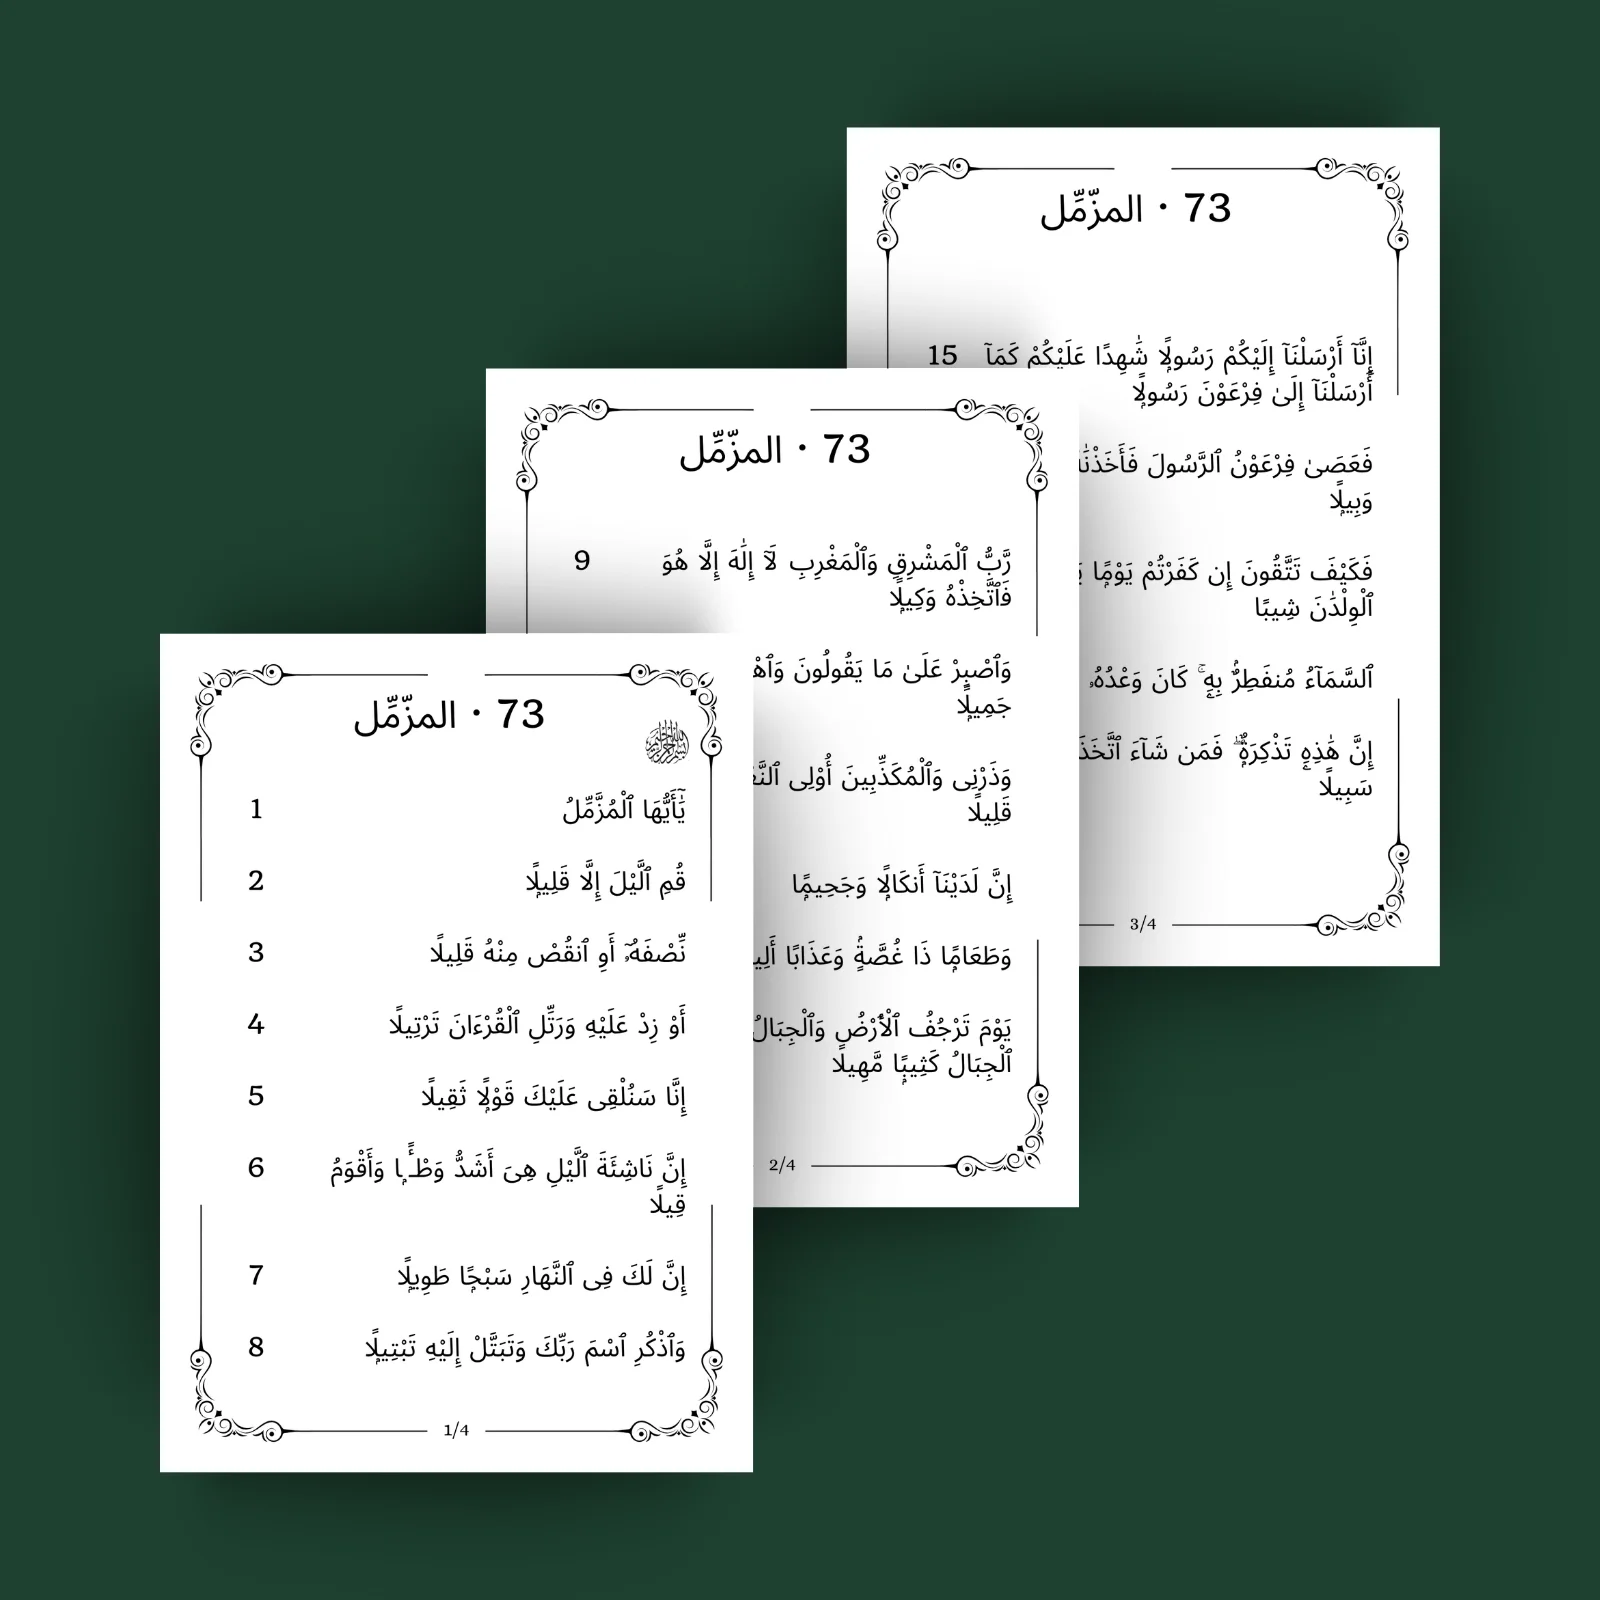 73 • المزّمِّل
﷽
1 يَٰٓأَيُّهَا ٱلْمُزَّمِّلُ
2 قُمِ ٱلَّيْلَ إِلَّا قَلِيلًۭا
3 نِّصْفَهُۥٓ أَوِ ٱنقُصْ مِنْهُ قَلِيلًا
4 أَوْ زِدْ عَلَيْهِ وَرَتِّلِ ٱلْقُرْءَانَ تَرْتِيلًا
5 إِنَّا سَنُلْقِى عَلَيْكَ قَوْلًۭا ثَقِيلًا
6 إِنَّ نَاشِئَةَ ٱلَّيْلِ هِىَ أَشَدُّ وَطْـًۭٔا وَأَقْوَمُ
قِيلًا
7 إِنَّ لَكَ فِى ٱلنَّهَارِ سَبْحًۭا طَوِيلًۭا
8 وَٱذْكُرِ ٱسْمَ رَبِّكَ وَتَبَتَّلْ إِلَيْهِ تَبْتِيلًۭا
1/4
73 • المزّمِّل
9 رَّبُّ ٱلْمَشْرِقِ وَٱلْمَغْرِبِ لَآ إِلَٰهَ إِلَّا هُوَ
فَٱتَّخِذْهُ وَكِيلًۭا
وَٱصْبِرْ عَلَىٰ مَا يَقُولُونَ
جَمِيلًۭا
وَذَرْنِى وَٱلْمُكَذِّبِينَ أُو۟لِى
قَلِيلًا
إِنَّ لَدَيْنَآ أَنكَالًۭا وَجَحِيمًۭا
وَطَعَامًۭا ذَا غُصَّةٍۢ وَعَذَابًا
يَوْمَ تَرْجُفُ ٱلْأَرْضُ وَٱلْجِبَالُ
ٱلْجِبَالُ كَثِيبًۭا مَّهِيلًا
2/4
73 • المزّمِّل
15 إِنَّآ أَرْسَلْنَآ إِلَيْكُمْ رَسُولًۭا شَٰهِدًا عَلَيْكُمْ كَمَآ
أَرْسَلْنَآ إِلَىٰ فِرْعَوْنَ رَسُولًۭا
فَعَصَىٰ فِرْعَوْنُ ٱلرَّسُولَ
وَبِيلًۭا
فَكَيْفَ تَتَّقُونَ إِن كَفَرْتُمْ يَوْمًۭا
ٱلْوِلْدَٰنَ شِيبًا
ٱلسَّمَآءُ مُنفَطِرٌۢ بِهِۦ ۚ كَانَ وَعْدُهُۥ
إِنَّ هَٰذِهِۦ تَذْكِرَةٌۭ ۖ فَمَن شَآءَ
سَبِيلًا
3/4